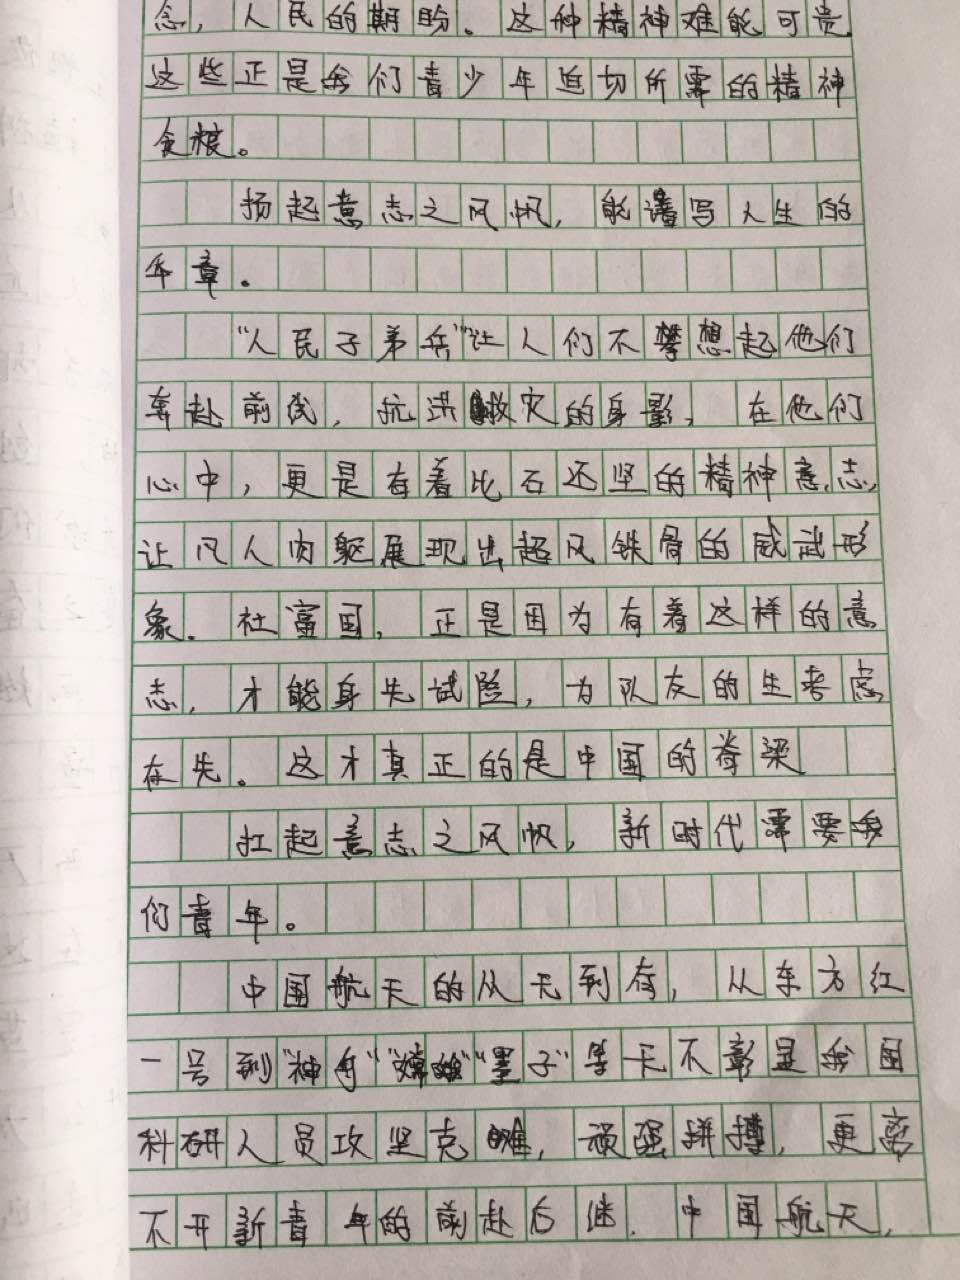 念，人民的期盼。这种精神难能可贵
这些正是我们青少年迫切所需的精神
食粮。
扬起意志之风帆，能谱写人生的
华章。
“人民子弟兵”让人们不禁想起他们
奔赴前线，抗洪救灾的身影，在他们
心中，更是有着比石还坚的精神意志，
让凡人肉躯展现出超风铁骨的威武形
象。杜富国，正是因为有着这样的意
志，才能身先试险，为队友的生考虑
在先。这才真正的是中国的脊梁
扛起意志之风帆，新时代需要我
们青年。
中国航天的从无到有，从东方红
一号到“神舟”“嫦娥”“墨子”等无不彰显我国
科研人员攻坚克难，顽强拼搏，更离
不开新青年的前赴后继．中国航天，